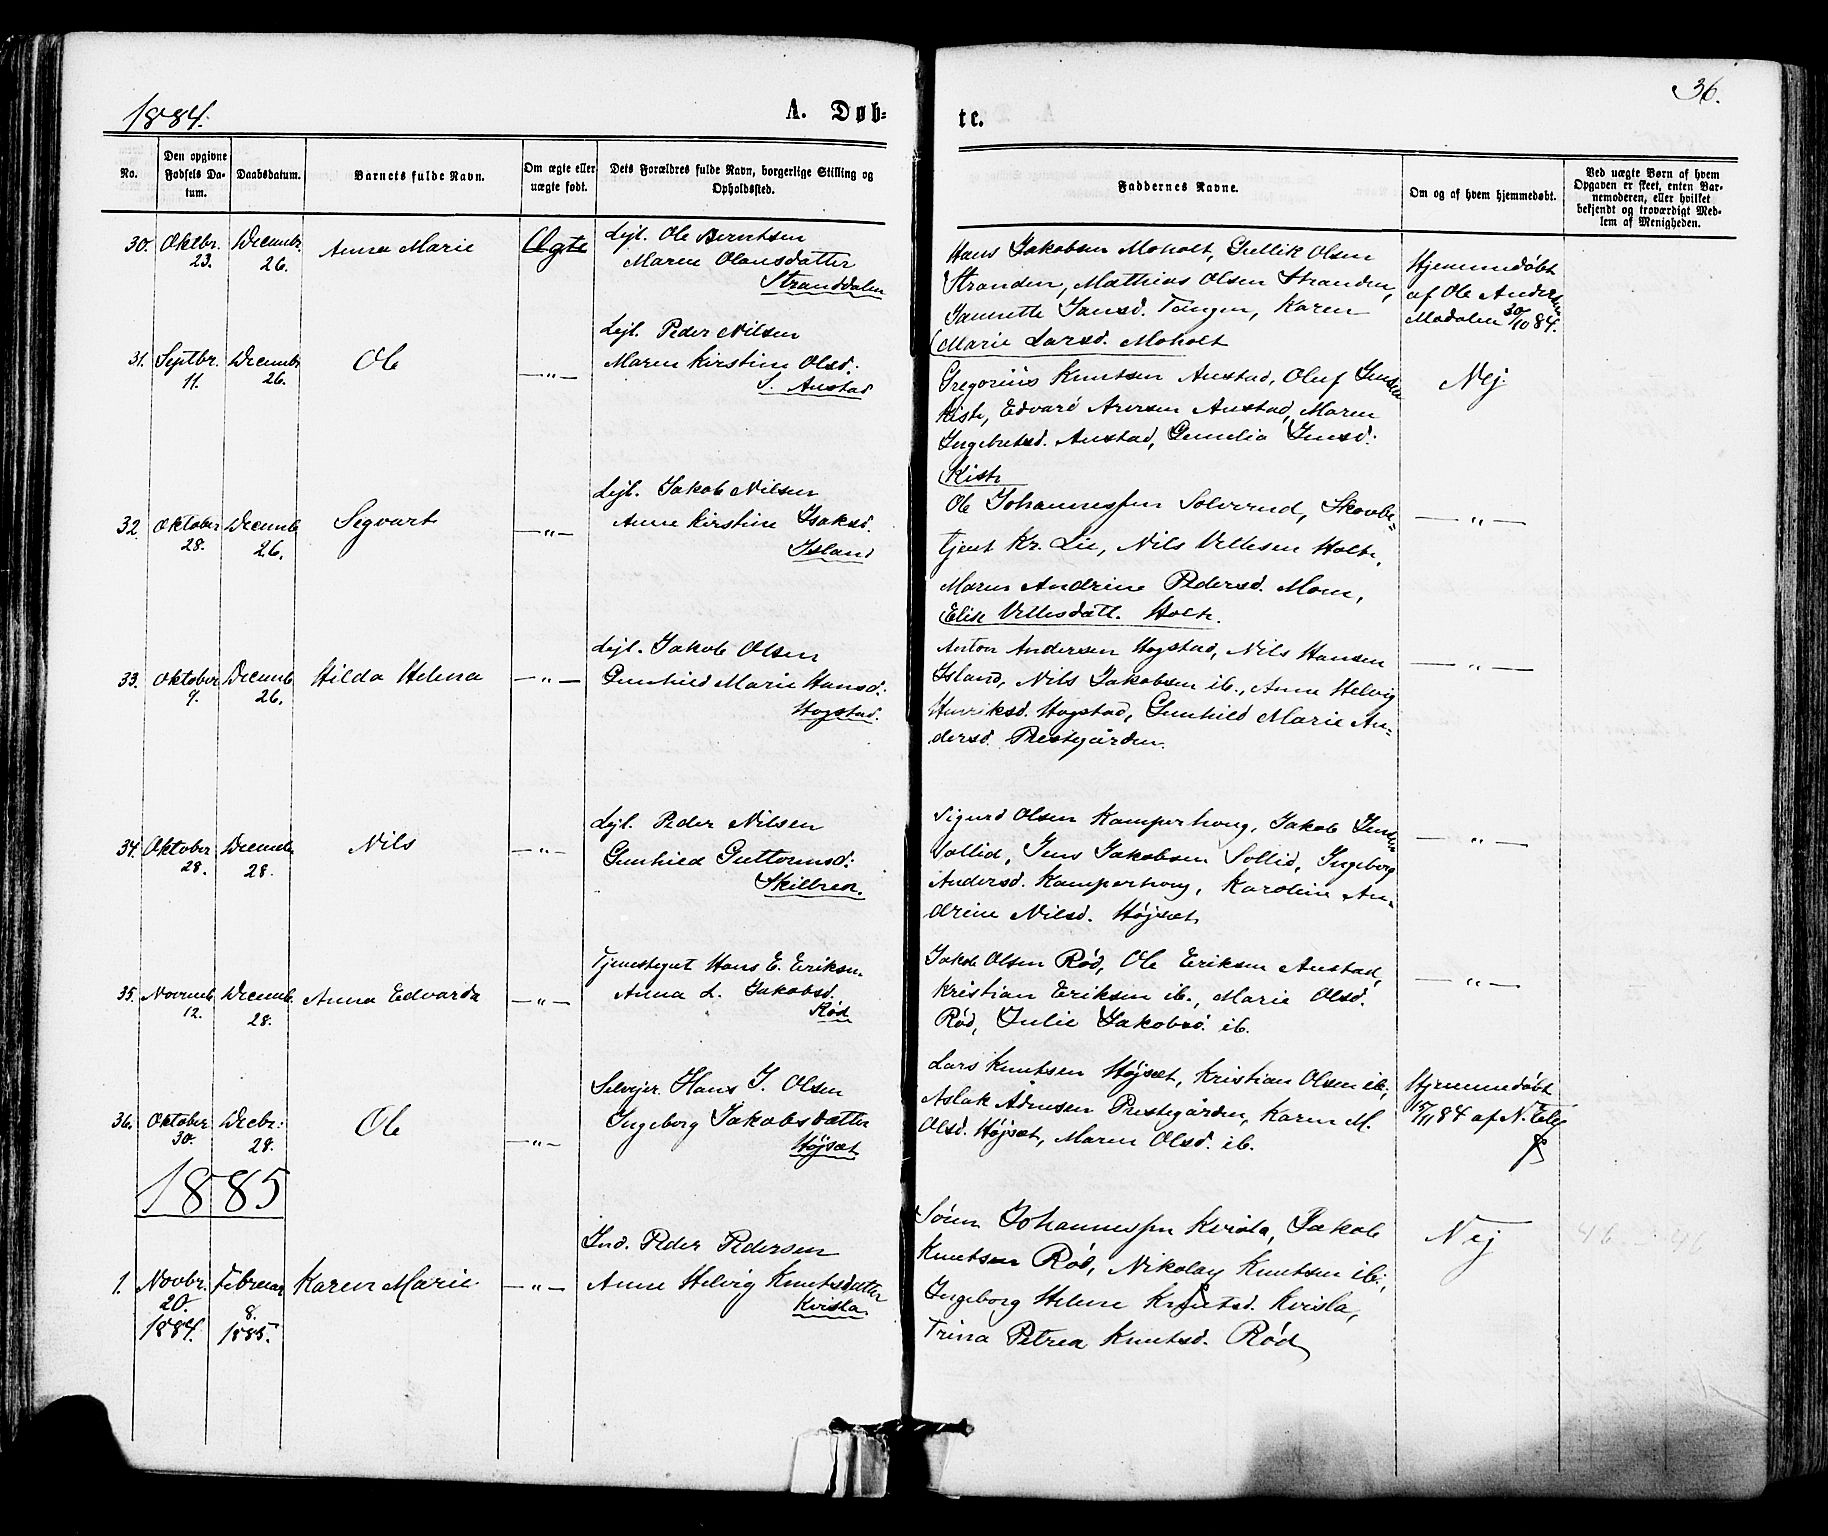 36.
1884.
A. Døb-
te.
No.
Den opgivne Fødsels Da-tum.
Daabsdatum.
Barnets fulde Navn.
Om ægte eller uægte født.
Dets Forældres fulde Navn, borgerlige Stilling og Opholdssted.
Faddernes Navne.
Om og af hvem hjemmedøbt.
Ved uægte Børn af hvem Opgaven er skeet, enten Bar-nemoderen, eller hvilket bekjendt og troværdigt Med-lem af Menigheden.
30. Oktbr. 23. Decembr. 26. Anna Marie Ægte
Lejl. Ole Berntsen
Maren Olausdatter
Stranddalen
Hans Jakobsen Moholt, Gullik Olsen
Stranden, Mathias Olsen Stranden,
Jaunette Jansd. Tangen, Karen
Marie Larsd. Moholt
Hjemmedøbt
af Ole Andersen
Modalen 30/10 84.
31. Septbr. 11. Decembr. 26. Ole —"—
Lejl. Peder Nilsen
Maren Kirstine Olsd.
S. Austad
Gregorius Knutsen Austad, Oluf Jensen
Kiste, Edvard Arersen Austad, Maren
Ingebretsd. Austad, Gunelia Jensd.
Kiste
Nej.
32. Oktober 28. Decemb. 26. Segvart —"—
Lejl. Jakob Nilsen
Anne Kirstine Isaksd.
Island
Ole Johannessen Solverud, Skovbe-
tjent Kr. Lie, Nils Vetlesen Holte,
Maren Andrine Pedersd. Moen,
Elise Vetlesdatt. Holte.
—"—
33. Oktober 9. Decemb. 26. Hilda Helena —"—
Lejl. Jakob Olsen
Gunhild Marie Hansd.
Hogstad.
Anton Andersen Hogstad, Nils Hansen
Island, Nils Jakobsen ib., Anne Helvig
Henriksd. Hogstad, Gunhild Marie An-
dersd. Prestegården.
—"—
34. Oktober 28. Decemb. 28. Nils —"—
Lejl. Peder Nilsen
Gunhild Guttormsd.
Skilbred.
Sigurd Olsen Kamperhoug, Jakob Jensen
Sollid, Jens Jakobsen Sollid, Ingeborg
Andersd. Kamperhoug, Karoline An-
drine Nilsd. Højset
—"—
35. Novemb. 12. Decemb. 28. Anna Edvarda —"—
Tjenestegut Hans E. Eriksen
Anna L. Jakobsd.
Rød
Jakob Olsen Rød, Ole Eriksen Austad,
Kristian Eriksen ib., Marie Olsd.
Rød, Julie Jakobsd. ib.
—"—
36. Oktober 30. Decbr. 28. Ole —"—
Selvejer Hans J. Olsen
Ingeborg Jakobsdatter
Højset
Lars Knutsen Højset, Kristian Olsen ib.,
Aslak Adnesen Prestegården, Karen M.
Olsd. Højset, Maren Olsd. ib.
Hjemmedøbt
5/11 84 af N.
1885
1. Novbr. 20. 1884. Februar 8. 1885. Karen Marie —"—
Ind. Peder Pedersen
Anne Helvig Knutsdatter
Kvisla
Søren Johannessen Kvisla, Jakob
Knutsen Rød, Nikolay Knutsen ib.,
Ingeborg Helene Knutsd. Kvisla,
Trina Petrea Knutsd. Rød
Nej